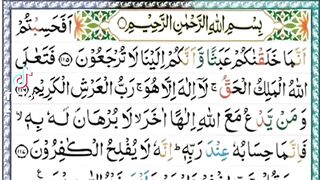 بِسْمِ اللّٰهِ الرَّحْمٰنِ الرَّحِيْمِ اَفَحَسِبْتُمْ
اَنَّمَا خَلَقْنٰكُمْ عَبَثًا وَّاَنَّكُمْ اِلَيْنَا لَا تُرْجَعُوْنَ ﴿۱۱۵﴾ فَتَعٰلَى
اللّٰهُ الْمَلِكُ الْحَقُّ ۚ لَاۤ اِلٰهَ اِلَّا هُوَ ۚ رَبُّ الْعَرْشِ الْكَرِيْمِ ﴿۱۱۶﴾
وَمَنْ يَّدْعُ مَعَ اللّٰهِ اِلٰهًا اٰخَرَ ۙ لَا بُرْهَانَ لَهٗ بِهٖ ۙ
فَاِنَّمَا حِسَابُهٗ عِنْدَ رَبِّهٖ ؕ اِنَّهٗ لَا يُفْلِحُ الْكٰفِرُوْنَ ﴿۱۱۷﴾